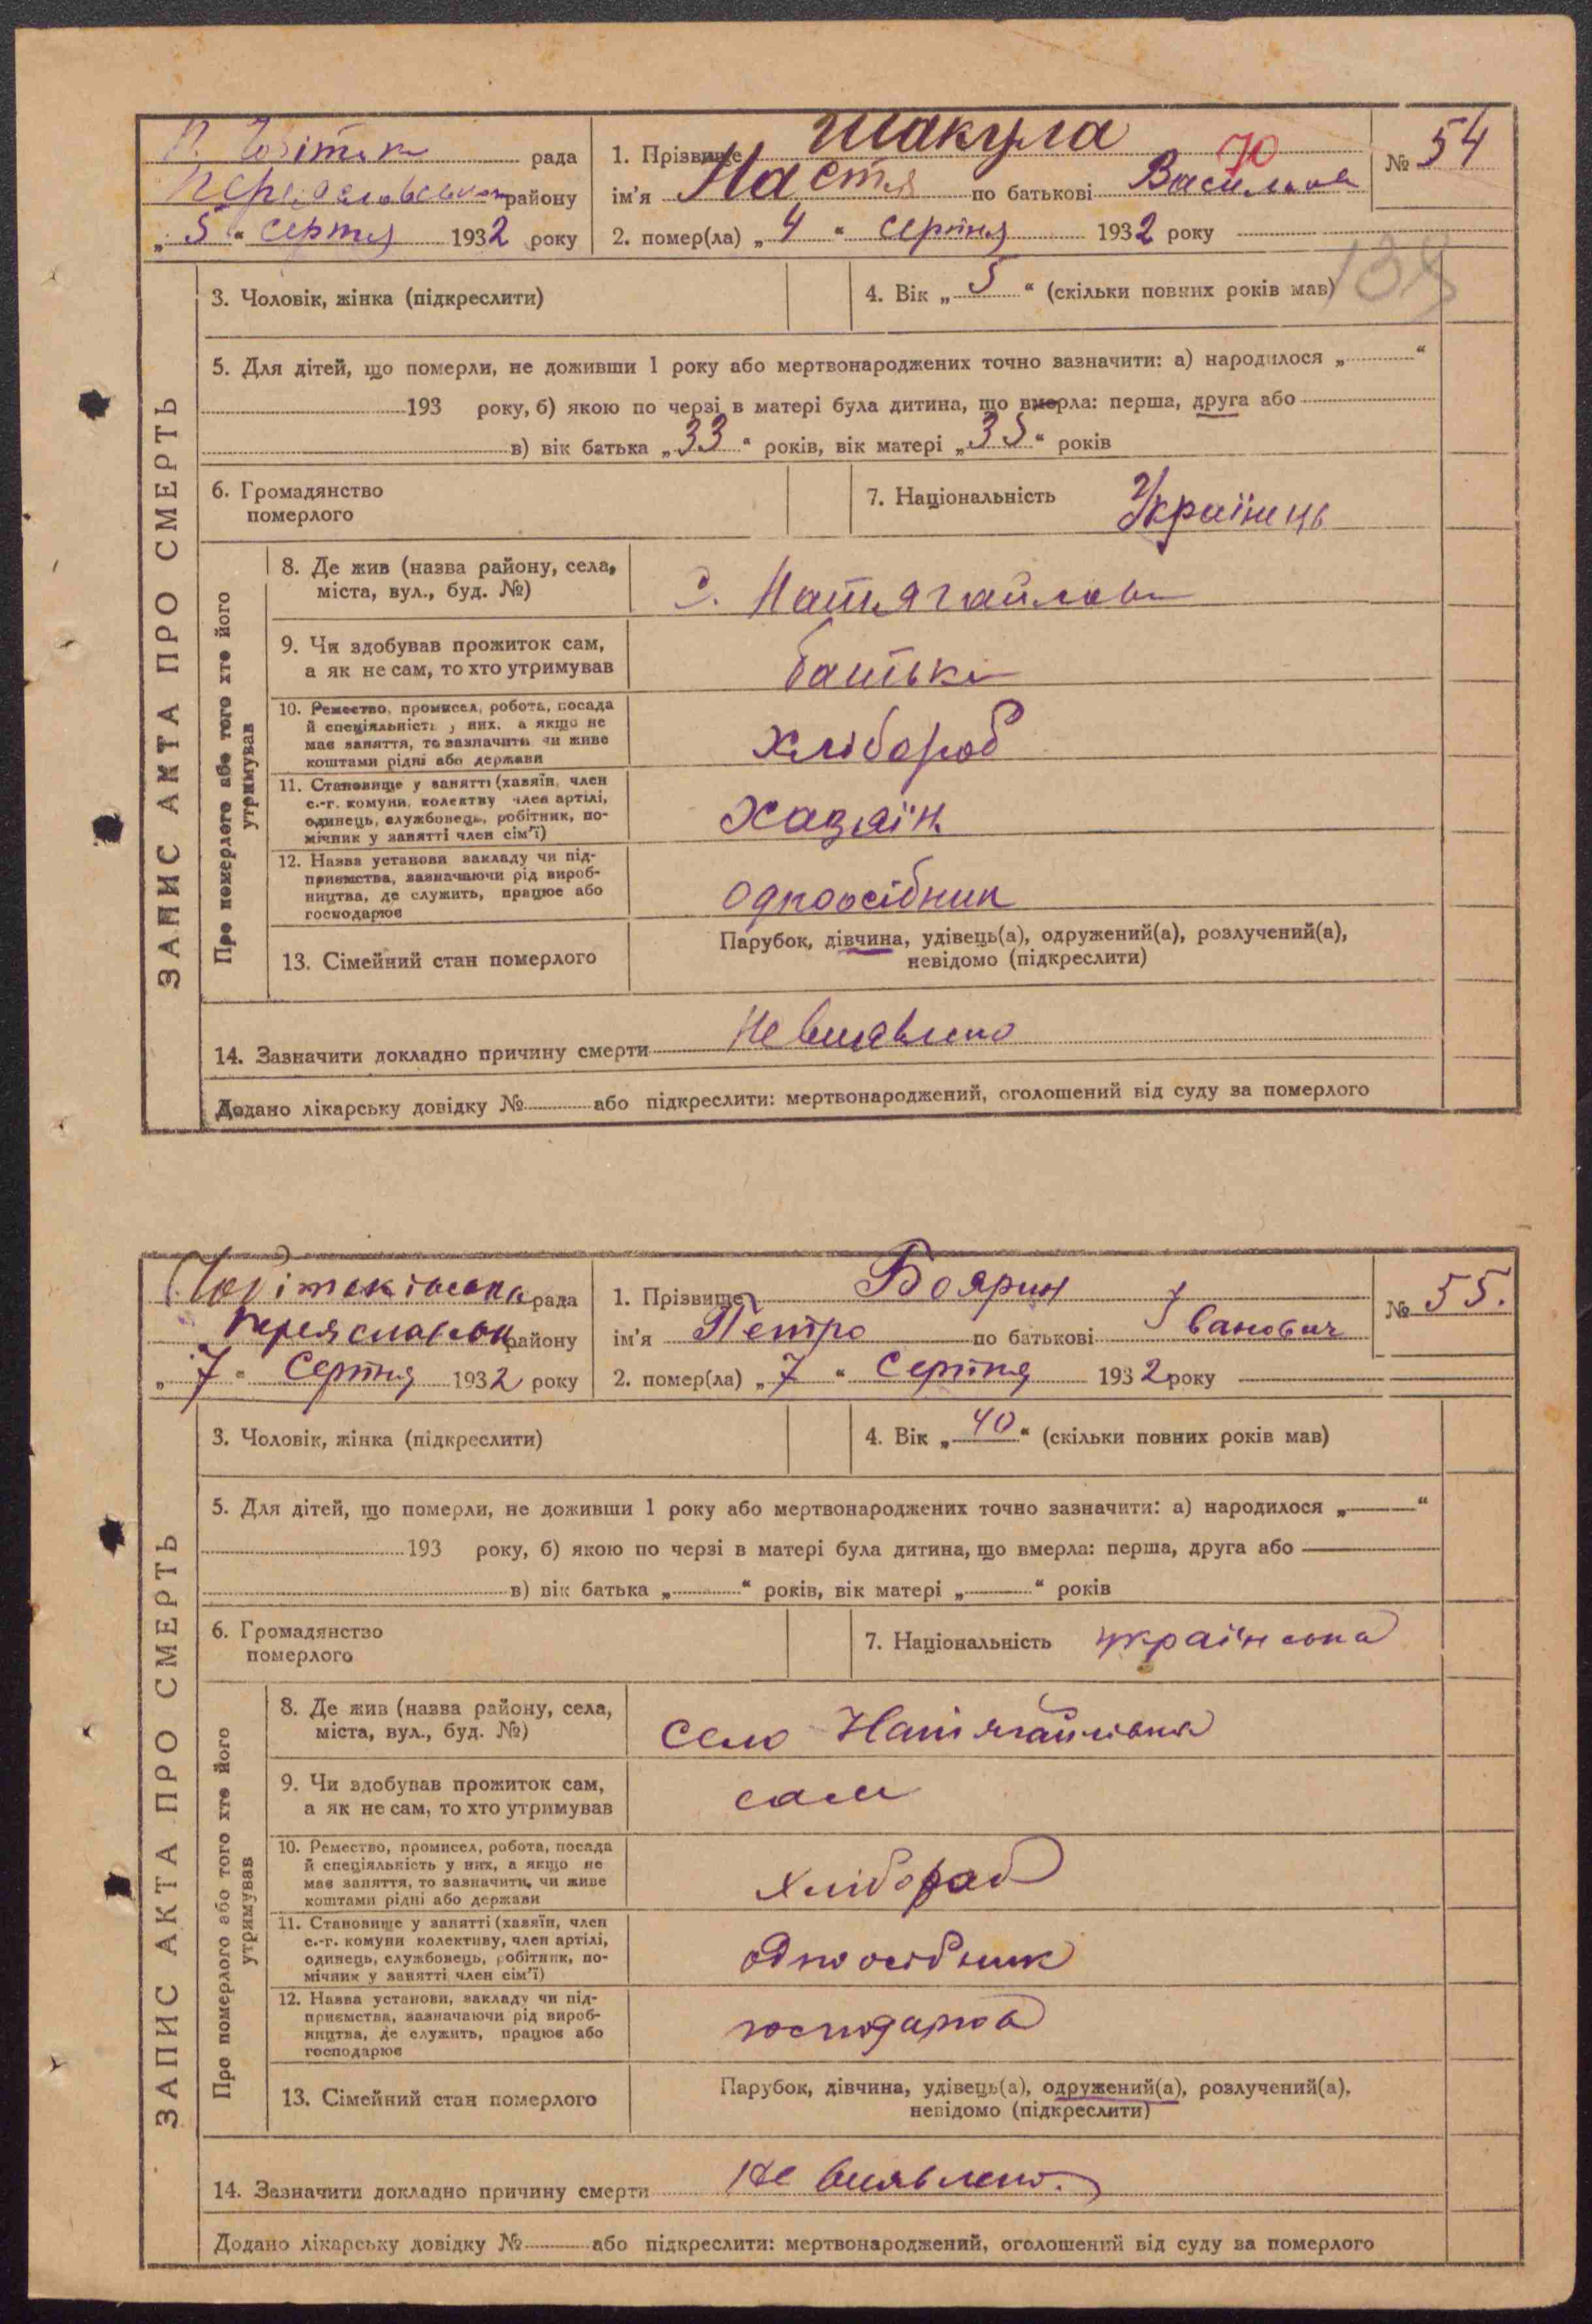 рада
Шакула
1. Прізвище
70
№ 54
району
ім'я Настя по батькові
„ 5 “ серпня 1932 року
2. помер(ла) „ 4 “ серпня 1932 року
3. Чоловік, жінка (підкреслити)
4. Вік „ 5 “ (скільки повних років мав)
5. Для дітей, що померли, не доживши 1 року або мертвонароджених точно зазначити: а) народилося „ “
193 року, б) якою по черзі в матері була дитина, що вмерла: перша, друга або
в) вік батька „ 33 “ років, вік матері „ 35 “ років
6. Громадянство
померлого
7. Національність Українець
8. Де жив (назва району, села,
міста, вул., буд. №)
с. Натягайлівка
9. Чи здобував прожиток сам,
а як не сам, то хто утримував
батьки
10. Ремество, промисел, робота, посада
й спеціяльність у них, а якщо не
має заняття, то зазначити чи живе
коштами рідні або держави
хлібороб
11. Становище у занятті (хазяїн, член
с.-г. комуни, колективу член артілі,
одинець, службовець, робітник, по-
мічник у занятті член сім'ї)
хазяїн
12. Назва установи закладу чи під-
приємства, зазначаючи рід вироб-
ництва, де служить, працює або
господарює
одноосібник
13. Сімейний стан померлого
Парубок, дівчина, удівець(а), одружений(а), розлучений(а),
невідомо (підкреслити)
14. Зазначити докладно причину смерти Не виявлено
Додано лікарську довідку № або підкреслити: мертвонароджений, оголошений від суду за померлого
ЗАПИС АКТА ПРО СМЕРТЬ
Про померлого або того хто його
утримував
рада
1. Прізвище Боярин
№ 55.
району
ім'я Петро по батькові Іванович
„ 7 “ Серпня 1932 року
2. помер(ла) „ 7 “ Серпня 1932 року
3. Чоловік, жінка (підкреслити)
4. Вік „ 40 “ (скільки повних років мав)
5. Для дітей, що померли, не доживши 1 року або мертвонароджених точно зазначити: а) народилося „ “
193 року, б) якою по черзі в матері була дитина, що вмерла: перша, друга або
в) вік батька „ “ років, вік матері „ “ років
6. Громадянство
померлого
7. Національність українська
8. Де жив (назва району, села,
міста, вул., буд. №)
село Натягайлівка
9. Чи здобував прожиток сам,
а як не сам, то хто утримував
сам
10. Ремество, промисел, робота, посада
й спеціяльність у них, а якщо не
має заняття, то зазначити, чи живе
коштами рідні або держави
хлібороб
11. Становище у занятті (хазяїн, член
с.-г. комуни колективу, член артілі,
одинець, службовець, робітник, по-
мічник у занятті член сім'ї)
одноосібник
12. Назва установи, закладу чи під-
приємства, зазначаючи рід вироб-
ництва, де служить, працює або
господарює
13. Сімейний стан померлого
Парубок, дівчина, удівець(а), одружений(а), розлучений(а),
невідомо (підкреслити)
14. Зазначити докладно причину смерти Не виявлено.
Додано лікарську довідку № або підкреслити: мертвонароджений, оголошений від суду за померлого
ЗАПИС АКТА ПРО СМЕРТЬ
Про померлого або того хто його
утримував